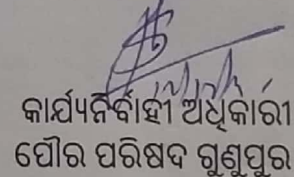 କାର୍ଯ୍ୟନିର୍ବାହୀ ଅଧିକାରୀ
ପୌର ପରିଷଦ ଗୁଣୁପୁର